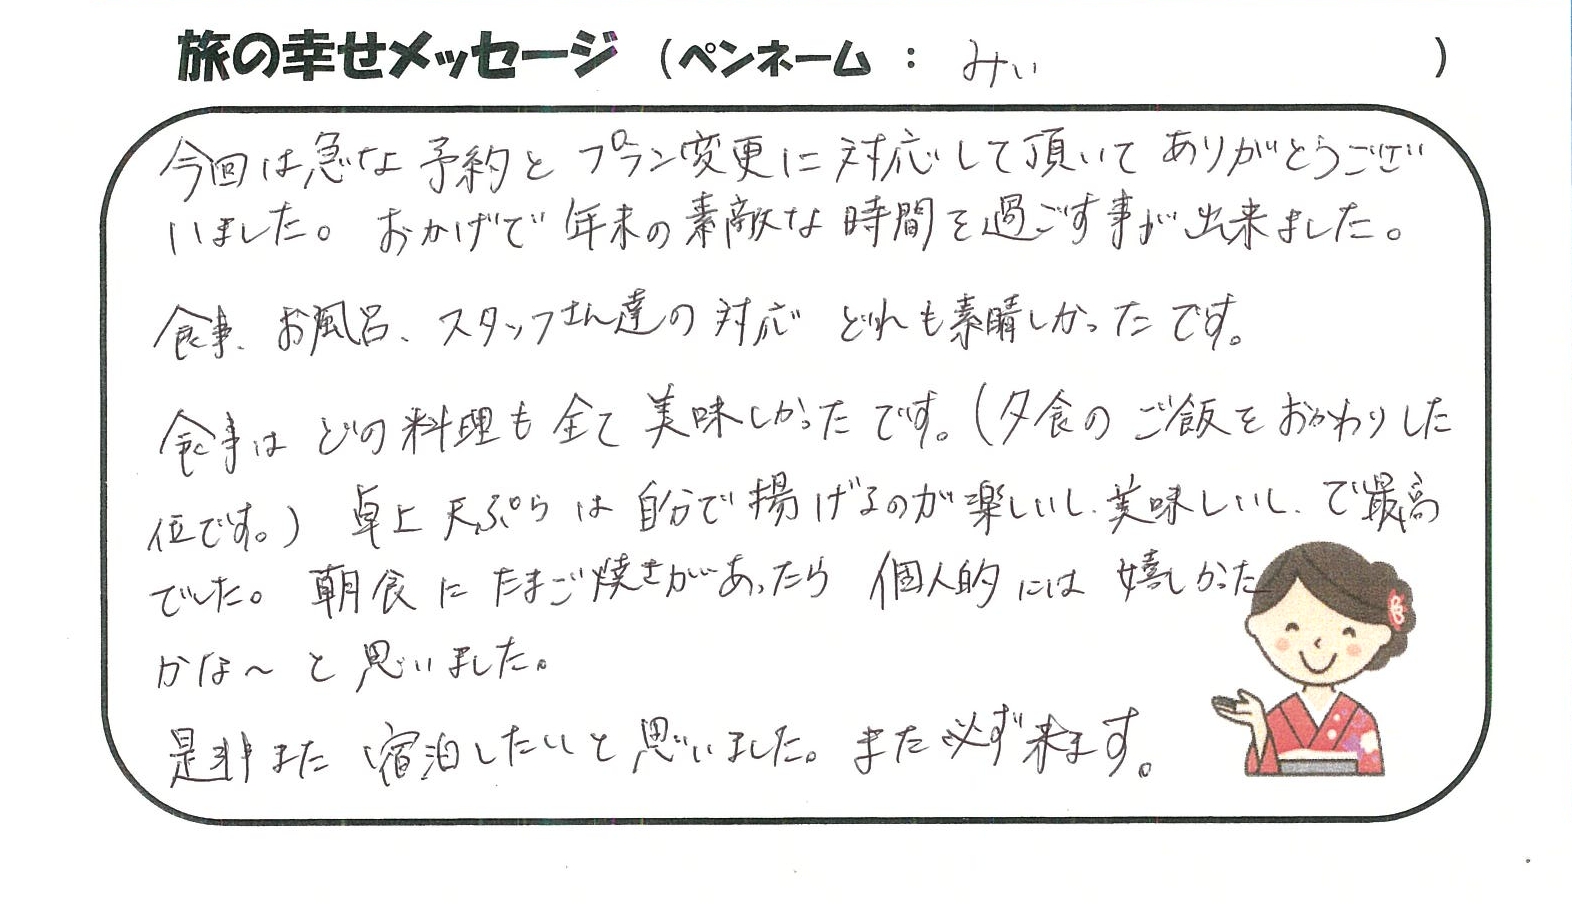 旅の幸せメッセージ（ペンネーム： みぃ ）
今回は急な予約とプラン変更に対応して頂いてありがとうござい
いました。おかげで年末の素敵な時間を過ごす事が出来ました。
食事、お風呂、スタッフさん達の対応 どれも素晴しかったです。
食事はどの料理も全て美味しかったです。(夕食のご飯をおかわりした
位です。) 卓上天ぷらは自分で揚げるのが楽しいし、美味しいし、で最高
でした。朝食にたまご焼きがあったら 個人的には嬉しかった
かな～と思いました。
是非また宿泊したいと思いました。また必ず来ます。